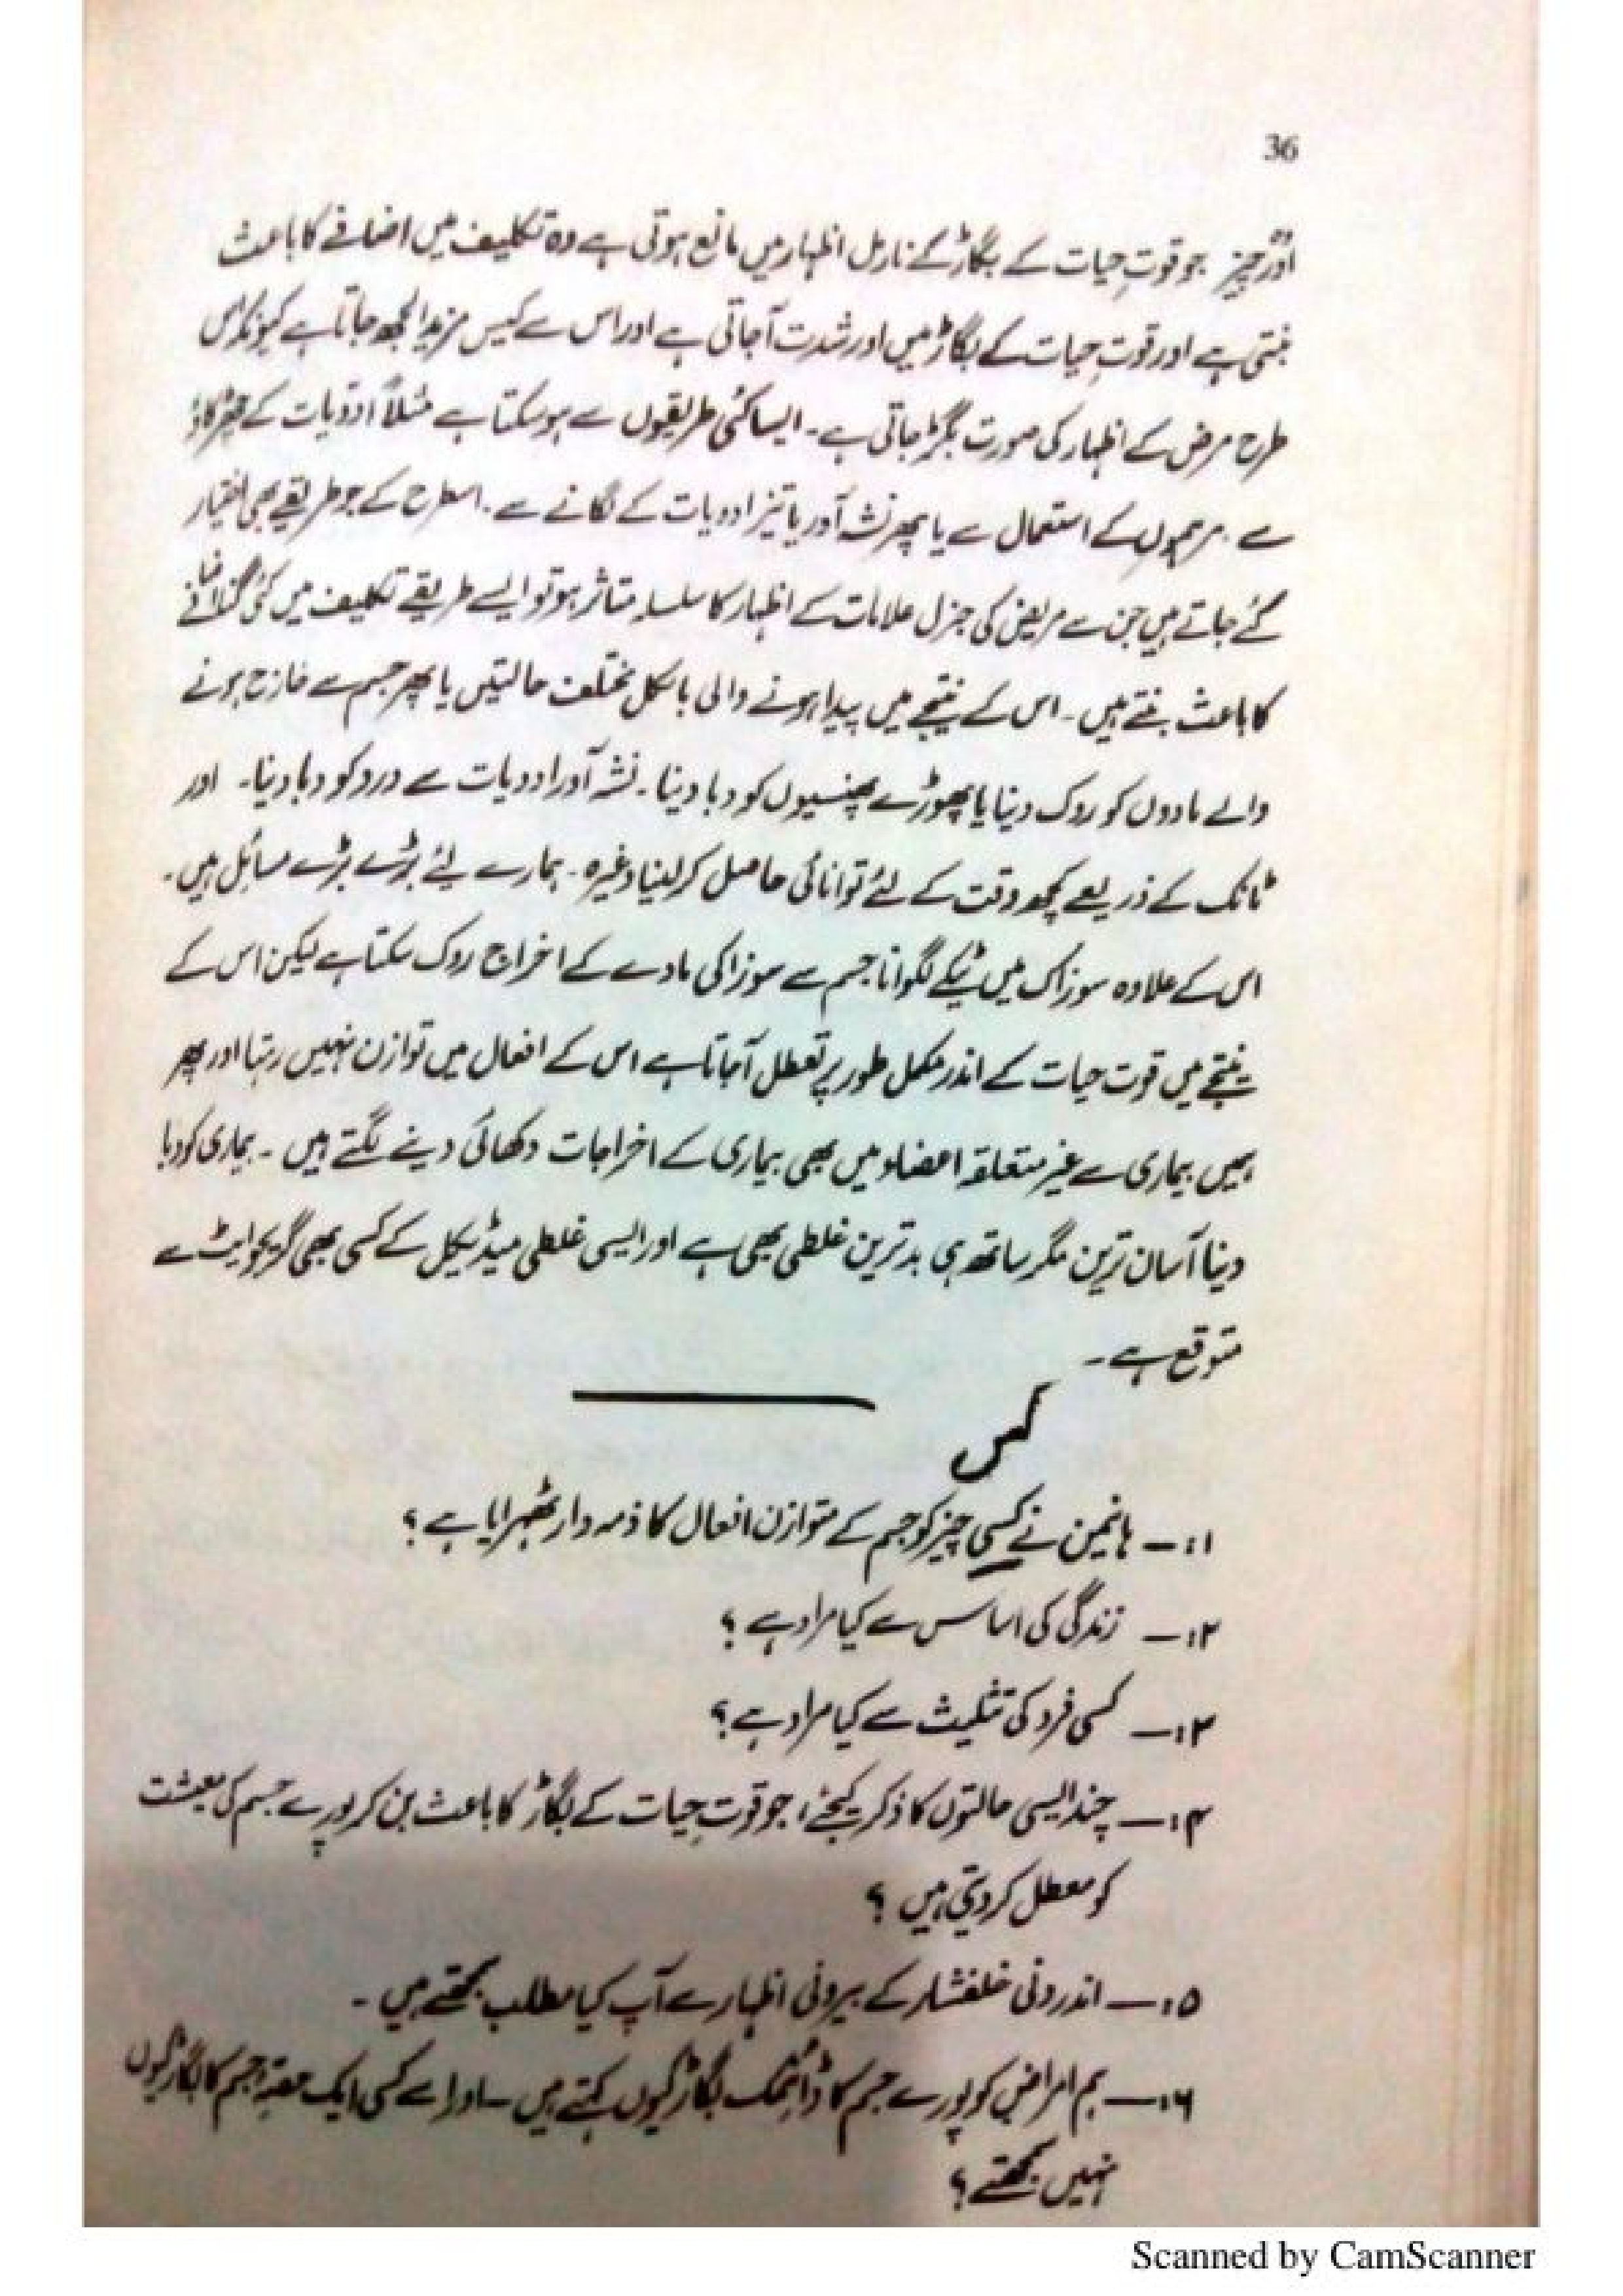 36
اور وہ چیز جو قوتِ حیات کے بگاڑ کے نارمل اظہار میں مانع ہوتی ہے وہ تکلیف میں اضافے کا باعث
بنتی ہے اور قوتِ حیات کے بگاڑ میں اور شدت آجاتی ہے اور اس سے کیس مزید الجھ جاتا ہے کیونکہ اس
طرح مرض کے اظہار کی صورت بگڑ جاتی ہے۔ ایسا کئی طریقوں سے ہو سکتا ہے مثلاً ادویات کے چھڑکاؤ
سے ، مرہموں کے استعمال سے یا پھر نشہ آور یا تیز ادویات کے لگانے سے۔ اسطرح کے جو طریقے بھی اختیار
کئے جاتے ہیں جن سے مریض کی جنرل علامات کے اظہار کا سلسلہ متاثر ہو تو ایسے طریقے تکلیف میں کئی گنا اضافے
کا باعث بنتے ہیں۔ اس کے نیتجے میں پیدا ہونے والی بالکل مختلف حالیتں یا پھر جسم سے خارج ہونے
والے مادوں کو روک دینا یا پھوڑے پھنسیوں کو دبا دینا۔ نشہ آور ادویات سے درد کو دبا دینا۔ اور
ٹانک کے ذریعے کچھ وقت کے لئے توانائی حاصل کر لینا وغیرہ۔ ہمارے لیئے بڑے بڑے مسائل ہیں۔
اس کے علاوہ سوزاک میں ٹیکے لگوانا جسم سے سوزاکی مادے کے اخراج روک سکتا ہے لیکن اس کے
نیتجے میں قوت حیات کے اندر مکمل طور پر تعطل آجاتا ہے اس کے افعال میں توازن نہیں رہتا اور پھر
ہمیں بیماری سے غیر متعلقہ اعضاء میں بھی بیماری کے اخراجات دکھائی دینے لگتے ہیں ۔ بیماری کو دبا
دینا آسان ترین مگر ساتھ ہی بدترین غلطی بھی ہے اور ایسی غلطی میڈیکل کے کسی بھی گریجوایٹ سے
متوقع ہے۔
کس
۱:— ہانیمن نے کسی چیز کو جسم کے متوازن افعال کا ذمہ دار ٹھہرایا ہے ؟
۲:— زندگی کی اساس سے کیا مراد ہے ؟
۳:— کسی فرد کی تثلیث سے کیا مراد ہے ؟
۴:— چند ایسی حالتوں کا ذکر کیجئے ، جو قوتِ حیات کے بگاڑ کا باعث بن کر پورے جسم کی معیشت
کو معطل کر دیتی ہیں ؟
۵:— اندرونی خلفشار کے بیرونی اظہار سے آپ کیا مطلب سمجھتے ہیں ۔
۶:— ہم امراض کو پورے جسم کا ڈائنمک بگاڑ کیوں کہتے ہیں ۔ اور اسے کسی ایک حصۂ جسم کا بگاڑ کیوں
نہیں سمجھتے ؟
Scanned by CamScanner